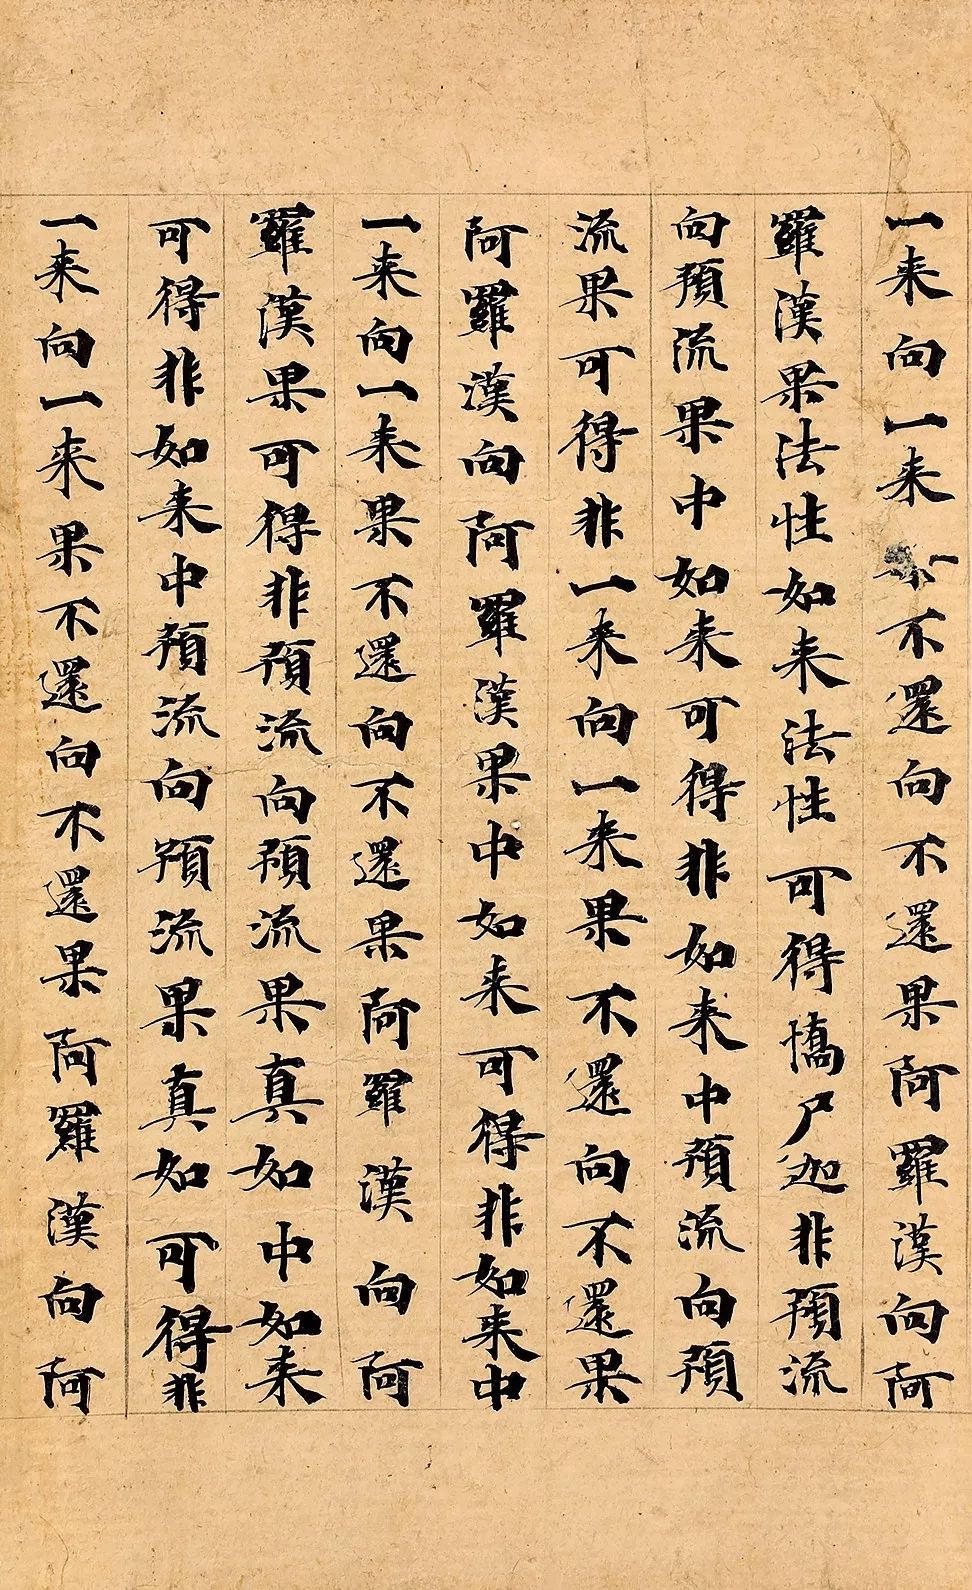 一来向一来不還向不還果阿羅漢向阿
羅漢果法性如来法性可得憍尸迦非預流
向預流果中如来可得非如来中預流向預
流果可得非一来向一来果不還向不還果
阿羅漢向阿羅漢果中如来可得非如来中
一来向一来果不還向不還果阿羅漢向阿
羅漢果可得非預流向預流果真如中如来
可得非如来中預流向預流果真如可得非
一来向一来果不還向不還果阿羅漢向阿